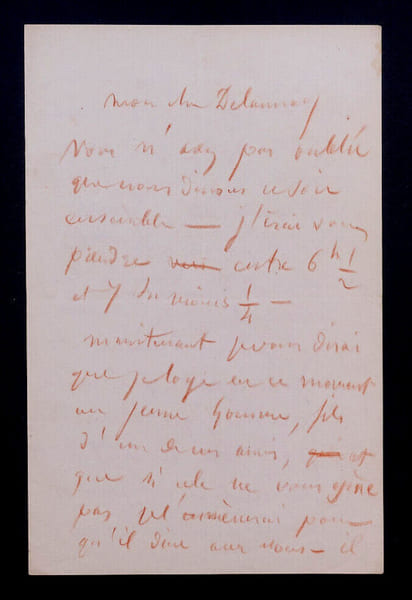 mon cher Delaunay
Vous n'avez pas oublié
que nous dinons ce soir
ensemble — j'irai vous
prendre entre 6 h 1/2
et 7 h moins 1/4 —
maintenant je vous dirai
que je loge en ce moment
un jeune homme, fils
d'un de mes amis, et
que si cela ne vous gêne
pas je l'amènerai pour
qu'il dine avec nous — il